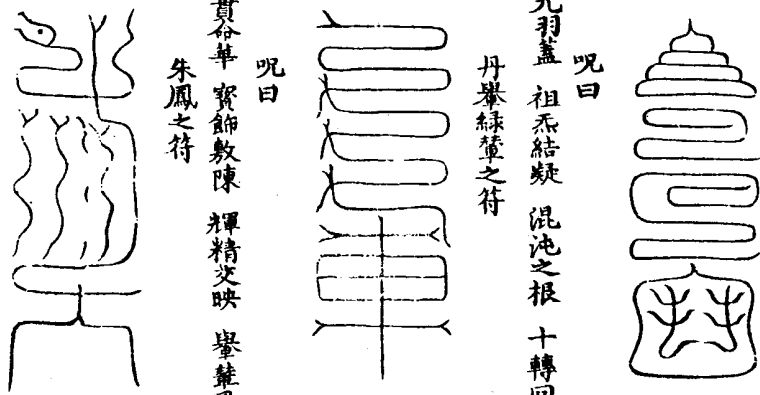 呪曰
羽蓋 祖炁結凝 混沌之根 十轉
丹轝綠輦之符
呪曰
華 寶飾敷陳 輝精交映 轝輦
朱鳳之符